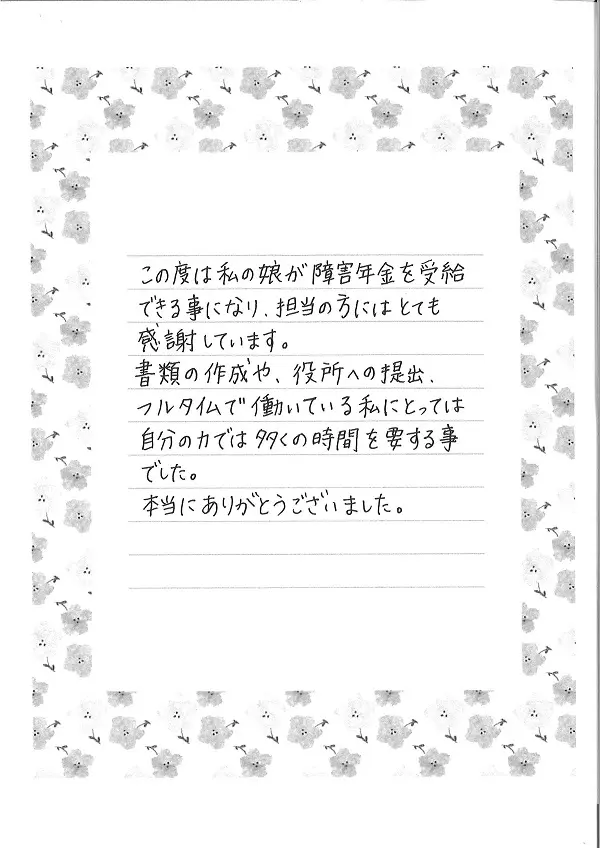 この度は私の娘が障害年金を受給
できる事になり、担当の方にはとても
感謝しています。
書類の作成や、役所への提出、
フルタイムで働いている私にとっては
自分の力では多くの時間を要する事
でした。
本当にありがとうございました。